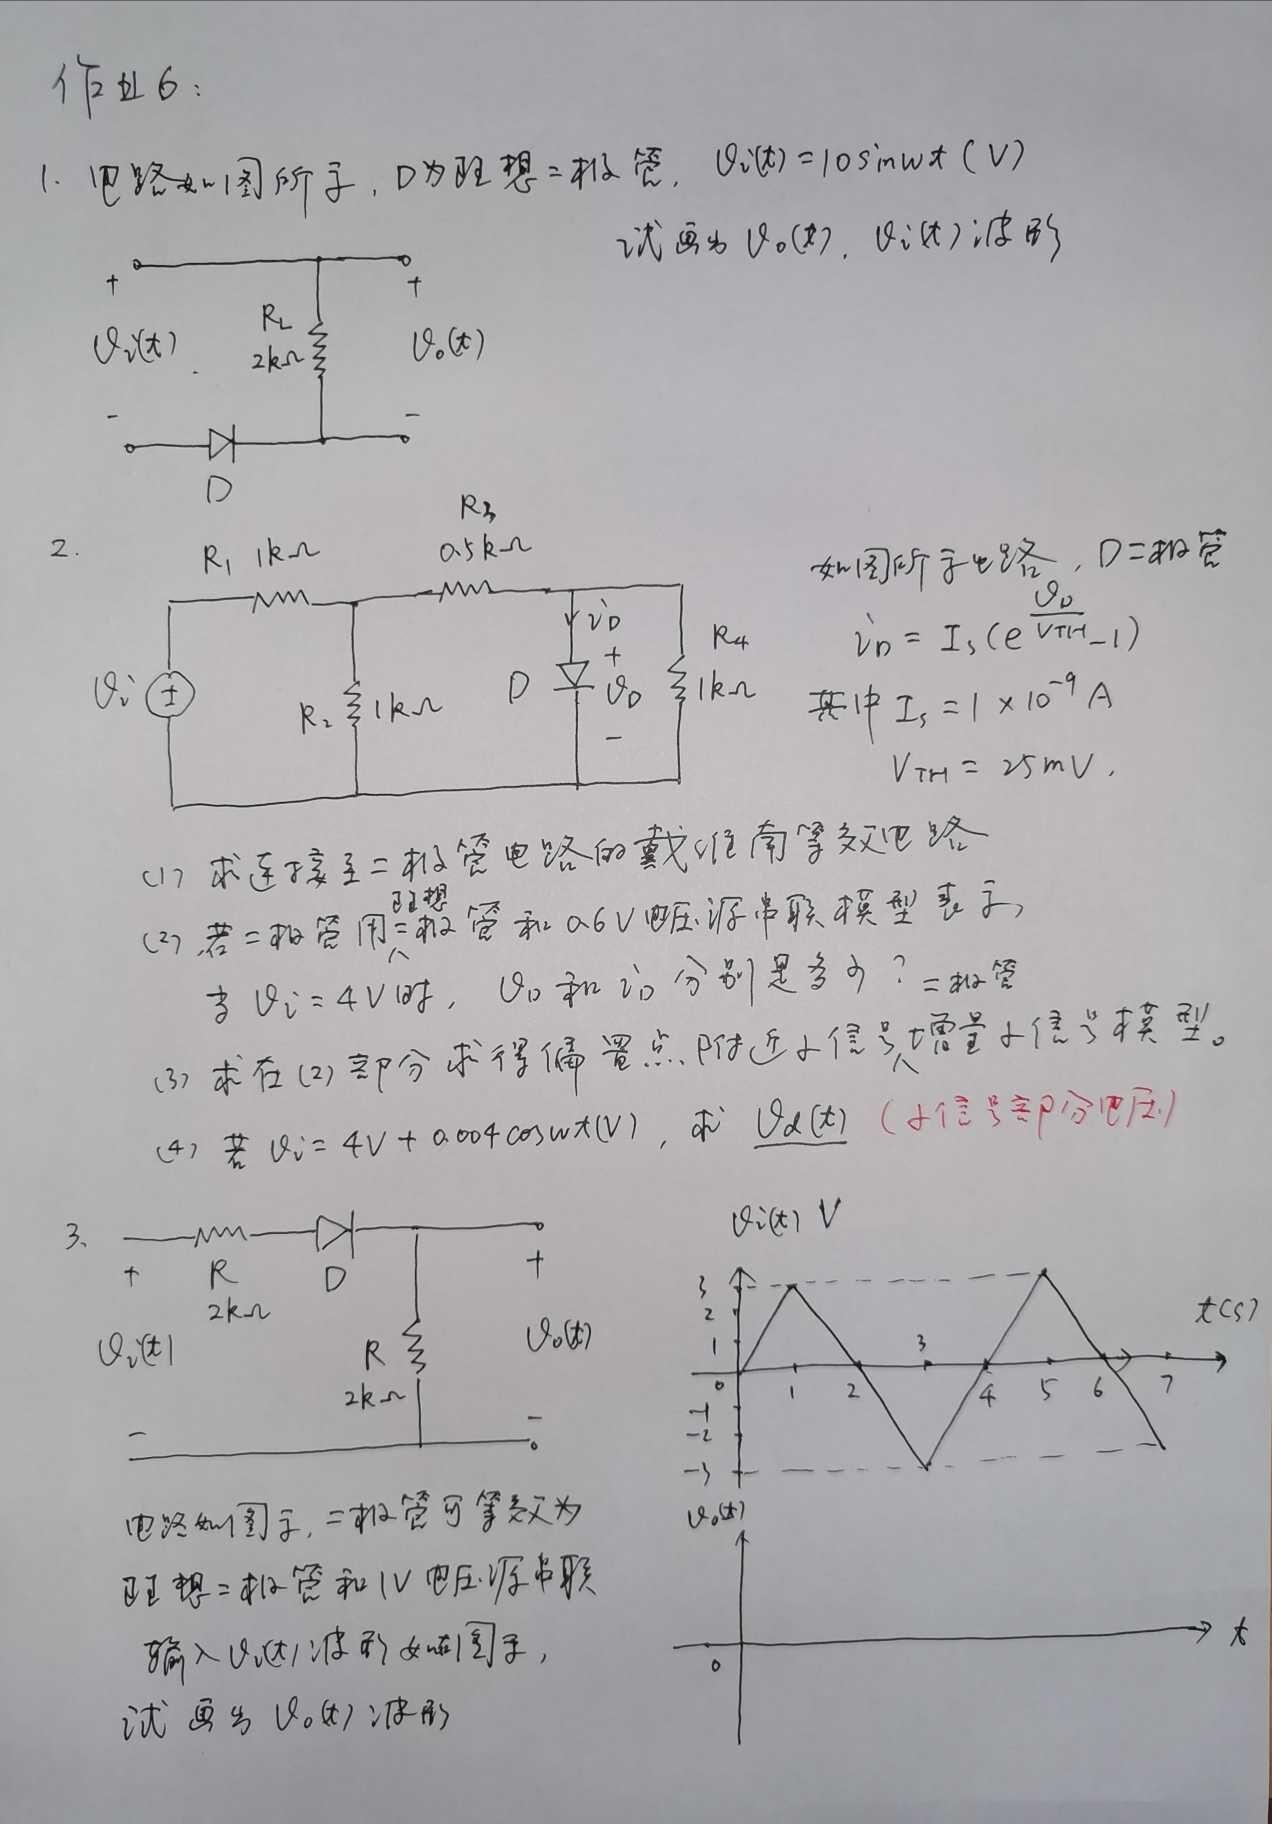 作业6:
1. 电路如图所示, D为理想二极管, vi(t)=10sinwt (V)
试画出 vo(t), vi(t) 波形
+
+
vi(t)
RL
2kΩ
vo(t)
-
-
D
2.
R1 1kΩ
R3
0.5kΩ
vi
±
R2
1kΩ
D
iD
+
vD
-
R4
1kΩ
如图所示电路, D二极管
iD = Is(e^(vD/VTH) -1)
其中 Is = 1×10⁻⁹ A
VTH = 25mV.
(1) 求连接至二极管电路的戴维南等效电路
(2) 若二极管用理想二极管和0.6V电压源串联模型表示,
当 vi=4V时, vD 和 iD 分别是多少?
(3) 求在(2)部分求得偏置点附近小信号二极管增量小信号模型。
(4) 若 vi=4V+0.004coswt(V), 求 vd(t) (小信号部分电压)
3.
+
R
2kΩ
D
+
vi(t)
R
2kΩ
vo(t)
-
-
电路如图示, 二极管可等效为
理想二极管和1V电压源串联
输入vi(t)波形如图示,
试画出 vo(t) 波形
vi(t) V
3
2
1
0
-1
-2
-3
1
2
3
4
5
6
7
t(s)
vo(t)
0
t